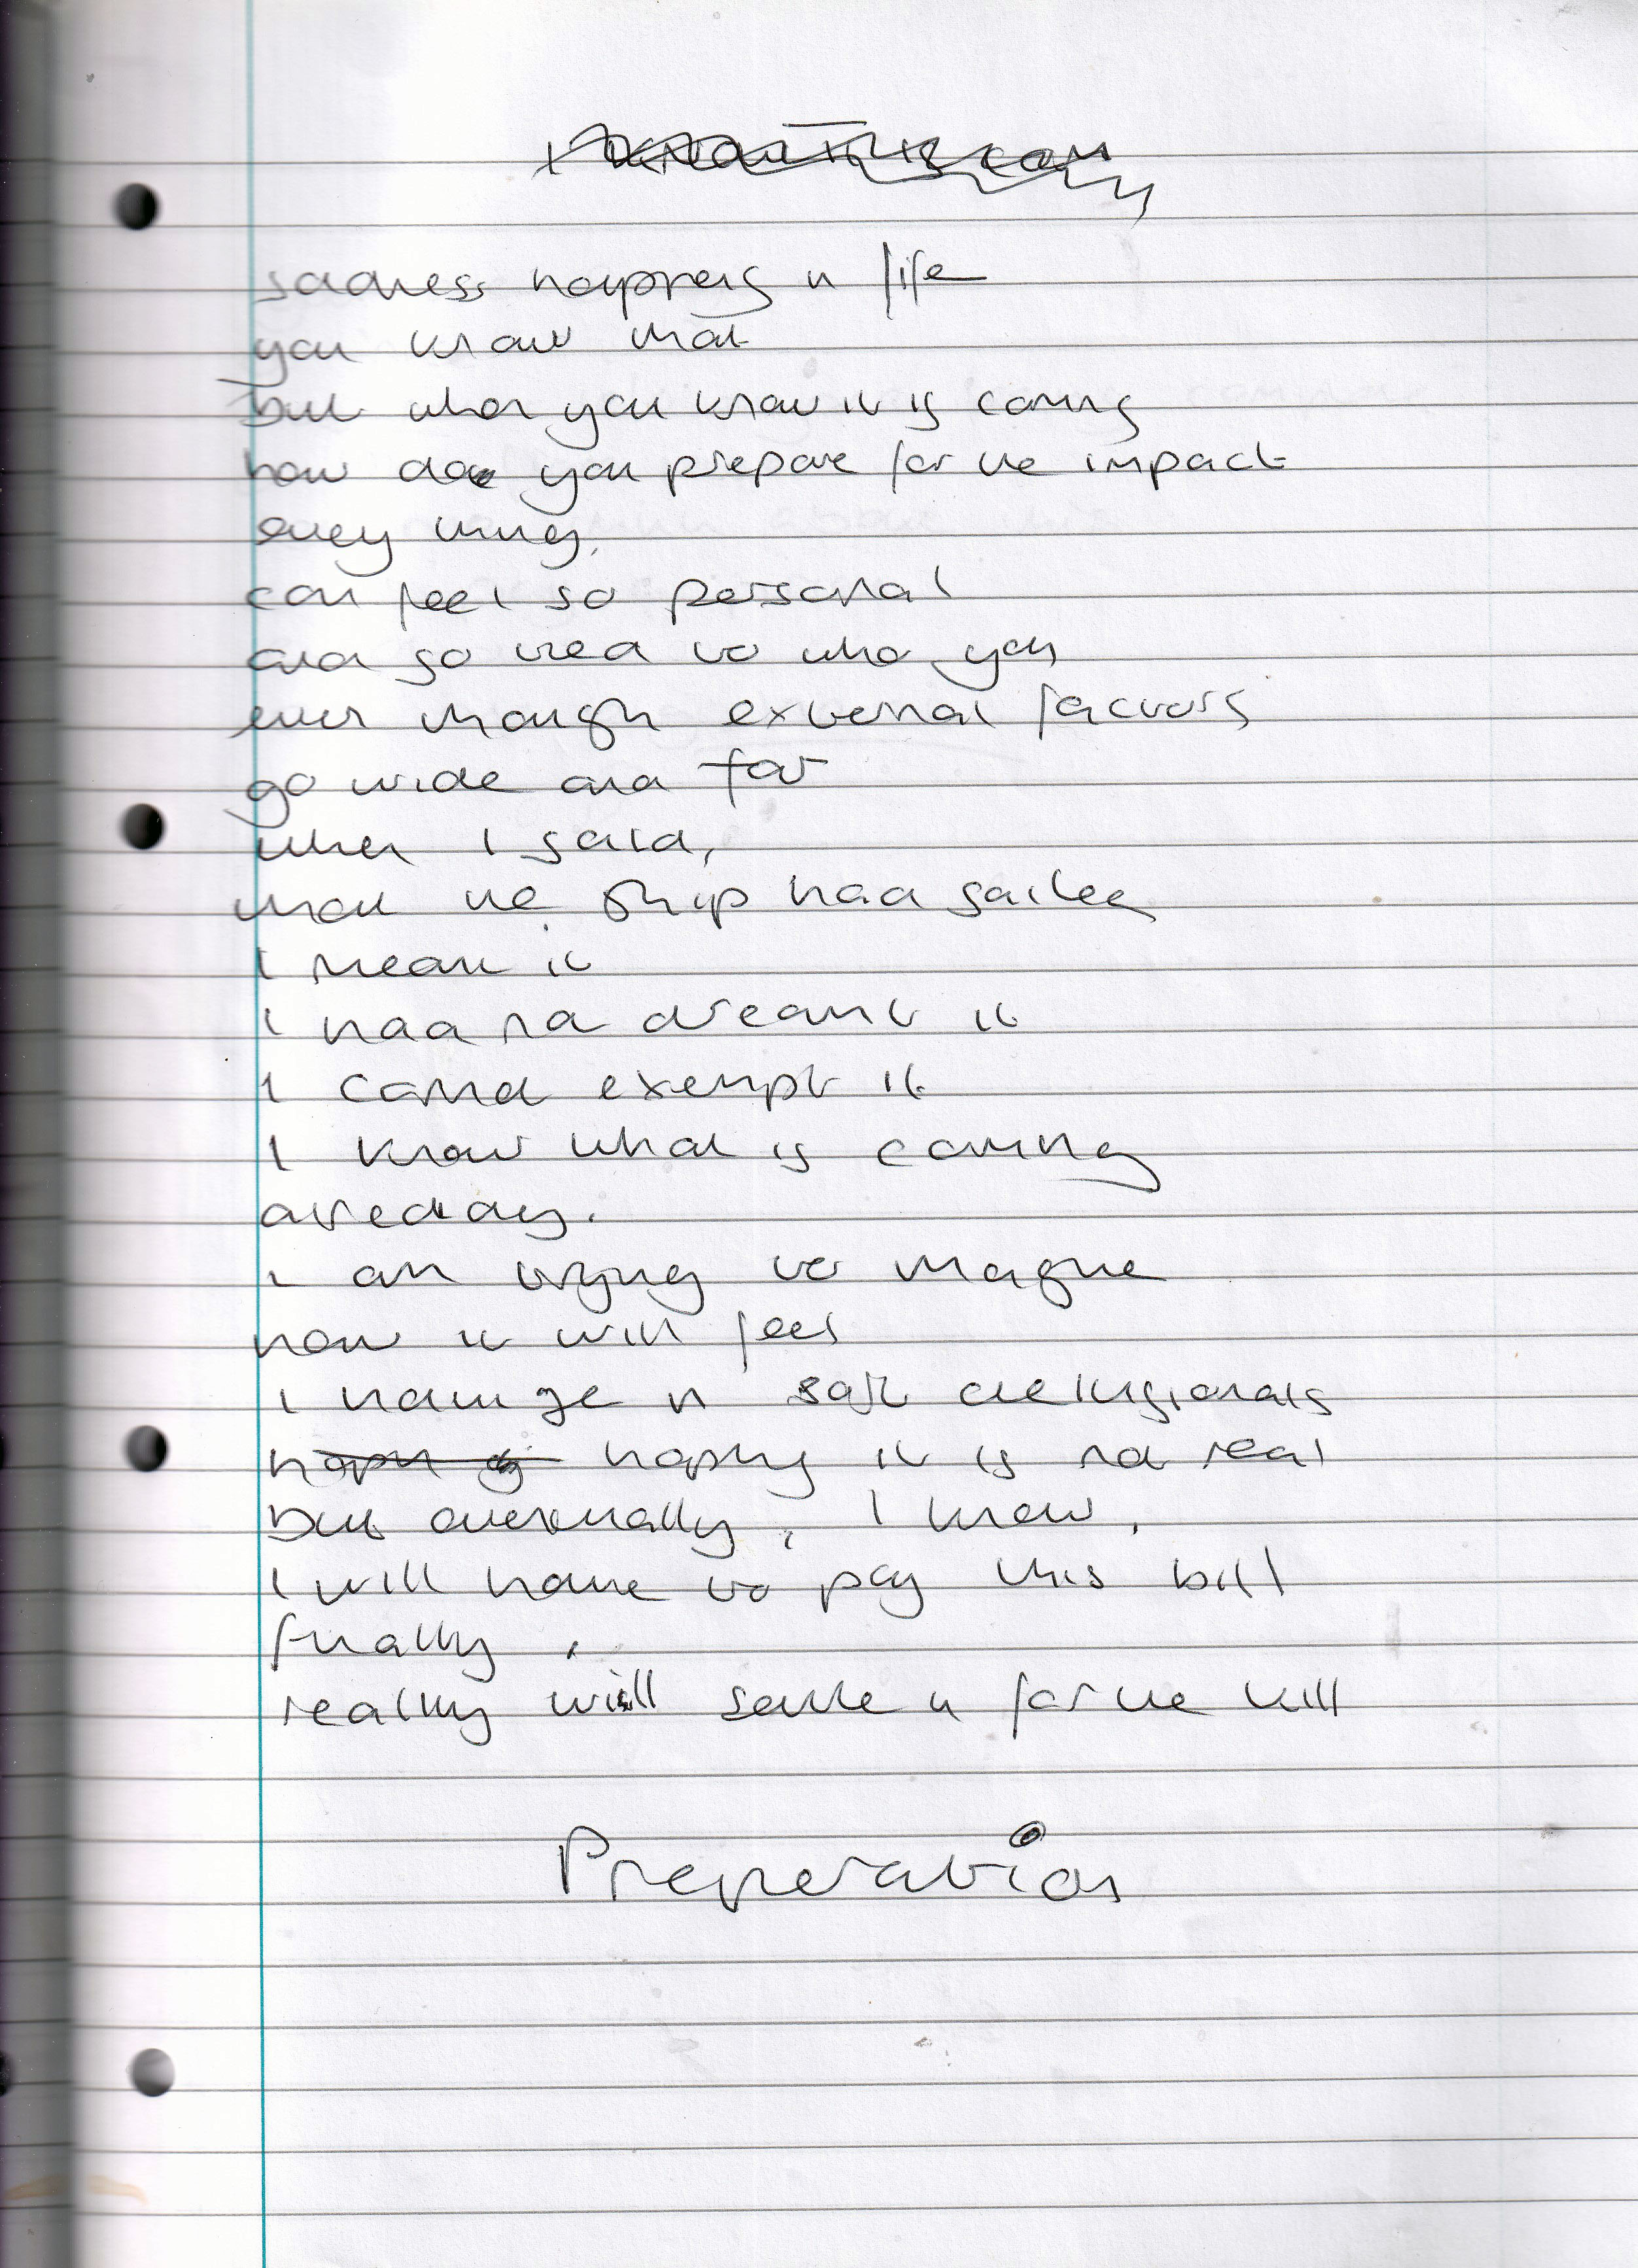 sadness happens in life
you know that
but when you know it is coming
how do you prepare for the impact
every thing.
can feel so personal
and so tied to who you
even though external factors
go wide and far
when I said,
that the ship had sailed
I mean it
I had not dreamt it
I cannot exempt it
I know what is coming
already.
I am trying to imagine
how it will feel
I in soft delusionals
hoping it is not real
but eventually, I know,
I will have to pay this bill
finally,
reality will settle in for the kill
Preperation